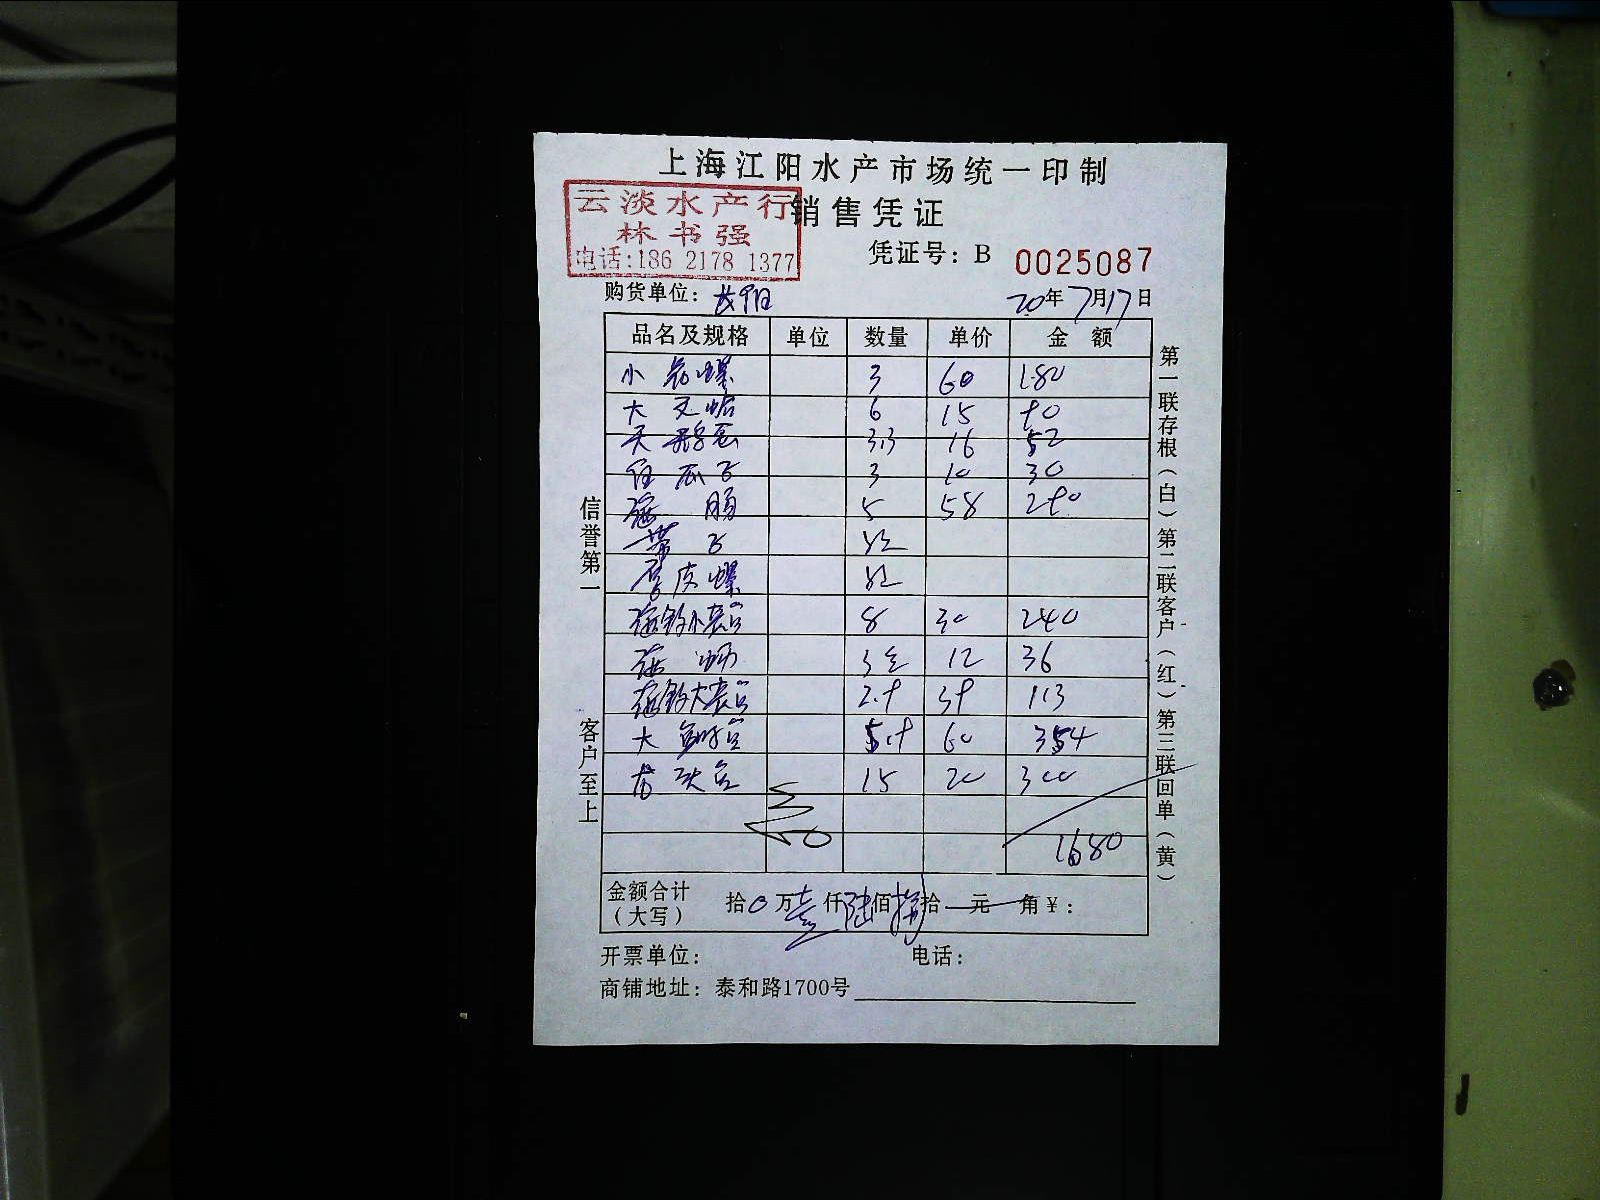 上海江阳水产市场统一印制
云淡水产行
销售凭证
林书强
电话:186 2178 1377
凭证号: B 0025087
购货单位:
20年7月17日
品名及规格 单位 数量 单价 金额
小 螺 3 60 180
大 文蛤 6 15 90
天鹅蛋 3.3 16 52
瓜子 3 10 30
海肠 5 58 290
带子
皮螺
海鲈小 8 30 240
海蛎 3 12 36
大 2.9 39 113
大 5.9 60 354
龙头鱼 15 20 300
1680
金额合计
(大写) 拾0万壹仟陆佰捌拾 元 角¥:
开票单位: 电话:
商铺地址: 泰和路1700号
信誉第一 客户至上
第一联存根(白)第二联客户(红)第三联回单(黄)